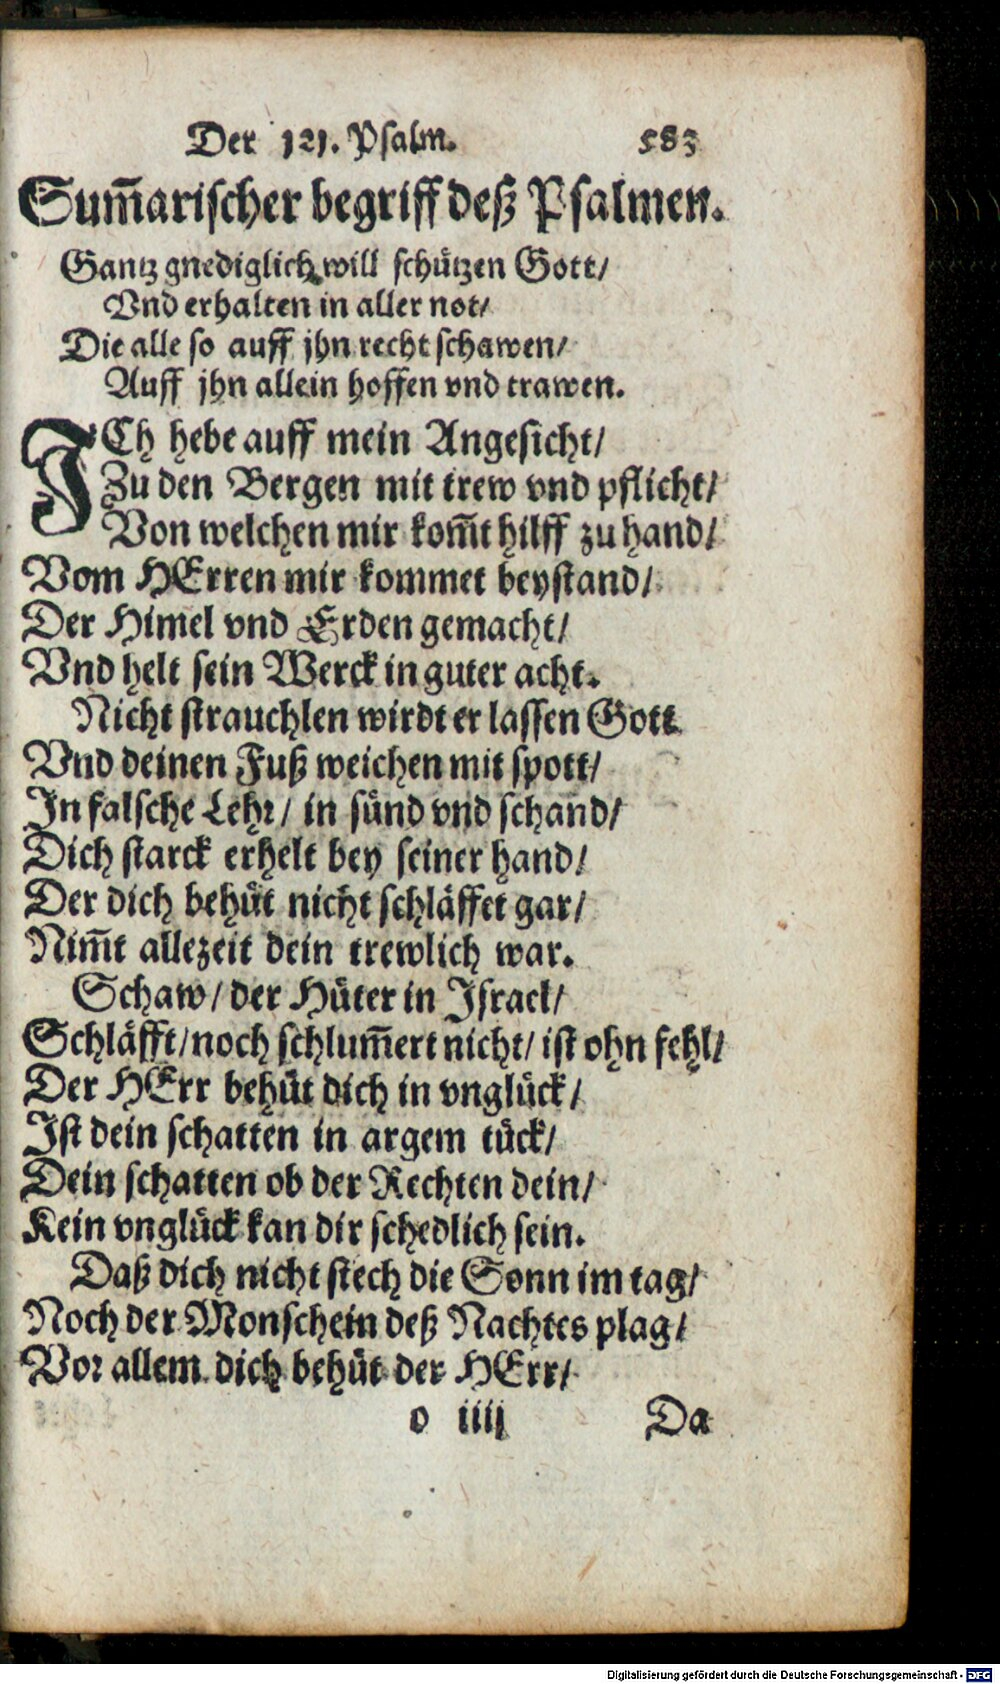 Der 121. Psalm. 583
Sum̄arischer begriff deß Psalmen.
Gantz gnediglich will schützen Gott/
Vnd erhalten in aller not/
Die alle so auff jhn recht schawen/
Auff jhn allein hoffen vnd trawen.
ICh hebe auff mein Angesicht/
Zu den Bergen mit trew vnd pflicht/
Von welchen mir kom̄t hilff zu hand/
Vom HErren mir kommet beystand/
Der Himel vnd Erden gemacht/
Vnd helt sein Werck in guter acht.
Nicht strauchlen wirdt er lassen Gott
Vnd deinen Fuß weichen mit spott/
In falsche Lehr/ in sünd vnd schand/
Dich starck erhelt bey seiner hand/
Der dich behüt nicht schläffet gar/
Nim̄t allezeit dein trewlich war.
Schaw/ der Hüter in Israel/
Schläfft/ noch schlum̄ert nicht/ ist ohn fehl/
Der HErr behüt dich in vnglück/
Ist dein schatten in argem tück/
Dein schatten ob der Rechten dein/
Kein vnglück kan dir schedlich sein.
Daß dich nicht stech die Sonn im tag/
Noch der Monschein deß Nachtes plag/
Vor allem dich behüt der HErr/
o iiij Da
Digitalisierung gefördert durch die Deutsche Forschungsgemeinschaft - DFG